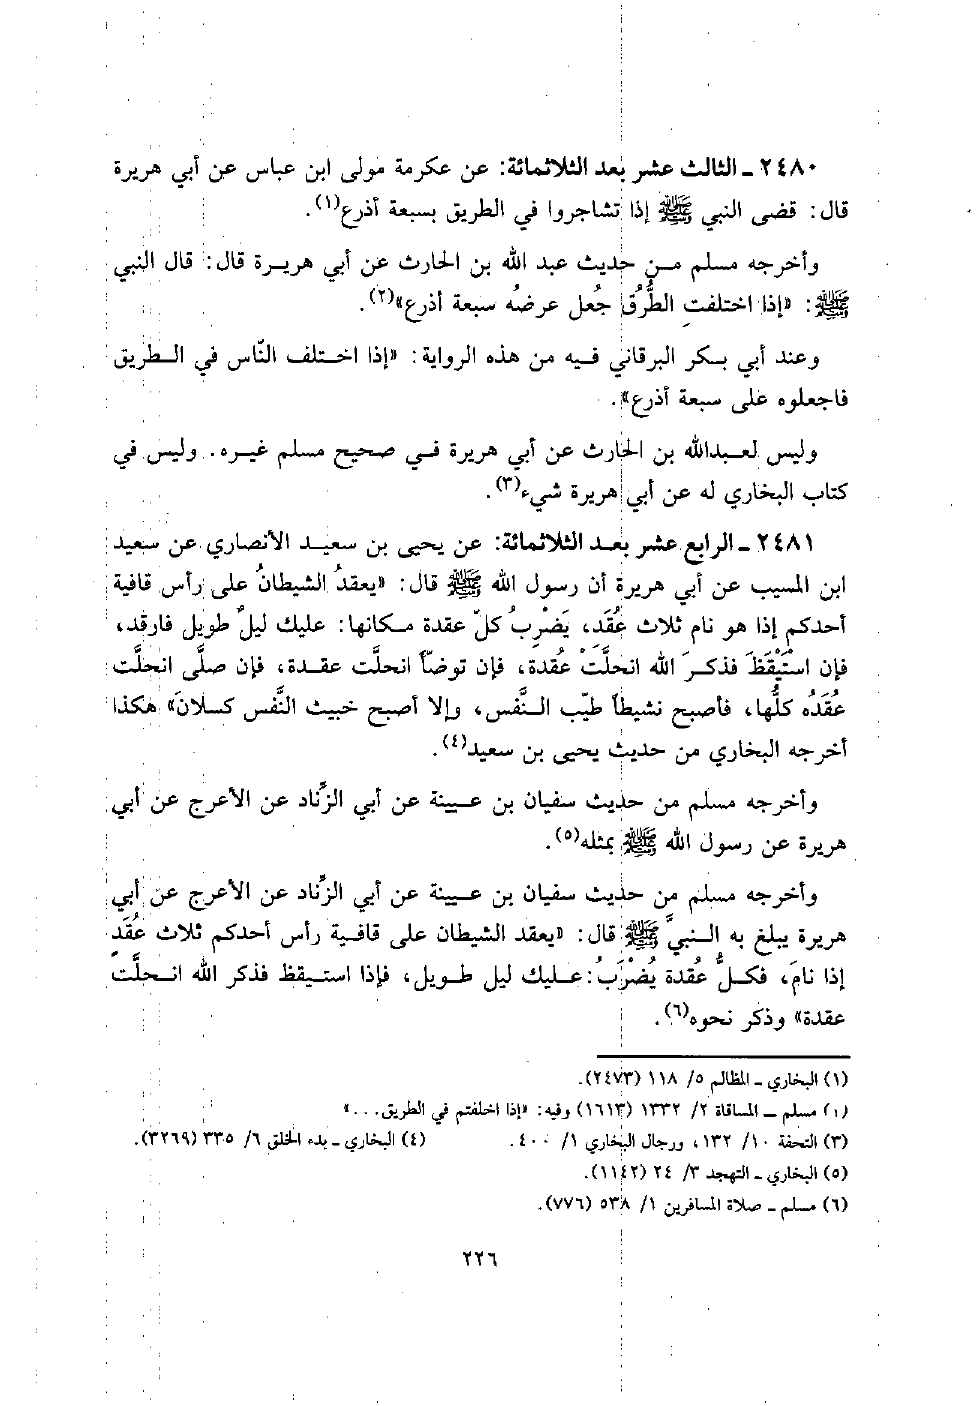 ٢٤٨٠ ـ الثالث عشر بعد الثلاثمائة: عن عكرمة مولى ابن عباس عن أبي هريرة
قال: قضى النبي ﷺ إذا تشاجروا في الطريق بسبعة أذرع(١).
وأخرجه مسلم من حديث عبد الله بن الحارث عن أبي هريرة قال: قال النبي
ﷺ: «إذا اختلفتِ الطُّرُق جُعل عرضُه سبعة أذرع»(٢).
وعند أبي بكر البرقاني فيه من هذه الرواية: «إذا اختلف النّاس في الطريق
فاجعلوه على سبعة أذرع».
وليس لعبدالله بن الحارث عن أبي هريرة في صحيح مسلم غيره. وليس في
كتاب البخاري له عن أبي هريرة شيء(٣).
٢٤٨١ ـ الرابع عشر بعد الثلاثمائة: عن يحيى بن سعيد الأنصاري عن سعيد
ابن المسيب عن أبي هريرة أن رسول الله ﷺ قال: «يعقدُ الشيطانُ على رأس قافية
أحدكم إذا هو نام ثلاث عُقَد، يَضْرِبُ كلّ عقدة مكانها: عليك ليلٌ طويل فارقد،
فإن استَيْقَظَ فذكرَ الله انحلَّتْ عُقدة، فإن توضّأ انحلَّت عقدة، فإن صلَّى انحلَّت
عُقَدُه كلُّها، فأصبح نشيطاً طيّب النَّفس، وإلا أصبح خبيث النَّفس كسلانَ» هكذا
أخرجه البخاري من حديث يحيى بن سعيد(٤).
وأخرجه مسلم من حديث سفيان بن عيينة عن أبي الزِّناد عن الأعرج عن أبي
هريرة عن رسول الله ﷺ بمثله(٥).
وأخرجه مسلم من حديث سفيان بن عيينة عن أبي الزِّناد عن الأعرج عن أبي
هريرة يبلغ به النبيَّ ﷺ قال: «يعقد الشيطان على قافية رأس أحدكم ثلاث عُقَدٍ
إذا نامَ، فكلُّ عُقدة يُضْرَبُ: عليك ليل طويل، فإذا استيقظ فذكر الله انحلَّت
عقدة» وذكر نحوه(٦).
(١) البخاري ـ المظالم ٥/ ١١٨ (٢٤٧٣).
(١) مسلم ـ المساقاة ٢/ ١٣٣٢ (١٦١٣) وفيه: «إذا اخلفتم في الطريق...»
(٣) التحفة ١٠/ ١٣٢، ورجال البخاري ١/ ٤٠٠. (٤) البخاري ـ بدء الخلق ٦/ ٣٣٥ (٣٢٦٩).
(٥) البخاري ـ التهجد ٣/ ٢٤ (١١٤٢).
(٦) مسلم ـ صلاة المسافرين ١/ ٥٣٨ (٧٧٦).
٢٢٦